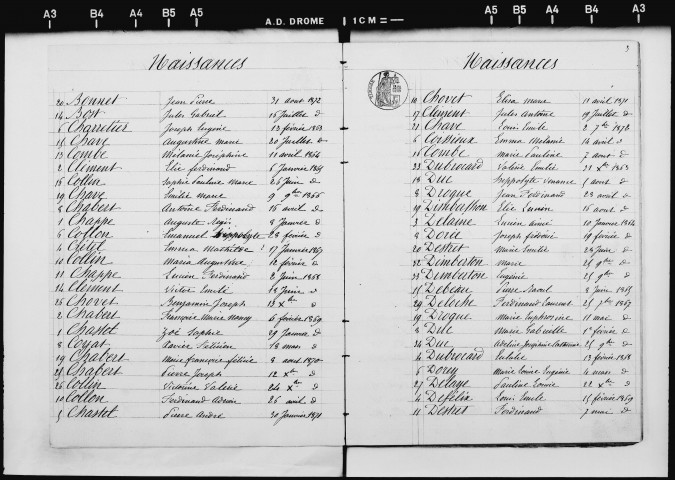 A3 B4 A4 B5 A5 A.D. DROME 1 CM = A5 B5 A4 B4 A3
Naissances
20 Bonnet Jean Pierre 31 aout 1872
14 Bost Jules Gabriel 15 Juillet d
6 Charretier Joseph Eugène 13 février 1863
11 Charc Augustine marie 20 Juillet d
13 Combe Mélanie Joséphine 11 avril 1864
2 Clément Elie ferdinand 6 Janvier 1865
15 Collin Sophie Pauline Marie 26 Juin d
19 Charc Emilie marie 9 9bre 1866
8 Chabert Antoine Ferdinand 15 avril d
1 Chappe Auguste Régis 8 Janvier d
6 Collon Emanuel hippolyte 28 février d
4 Clétet Emma Mathilde 17 Janvier 1867
10 Collin Maria Augustine 12 février d
11 Chappe Lucien Ferdinand 2 Juin 1868
14 Clément Victor Emile 18 Juin d
25 Chovet Benjamin Joseph 12 Xbre d
2 Chabert Françoise Marie Nancy 6 février 1869
1 Chastot Zoé Sophie 29 Janvier d
8 Coyat Xavier 18 mars d
19 Chabert Marie françoise félicie 8 aout 1870
21 Chabert Pierre Joseph 12 Xbre d
25 Collin Victorine Valérie 24 Xbre d
10 Collon Ferdinand Adrien 25 avril d
5 Chastot Pierre André 30 Janvier 1871
3
Naissances
10 Chovet Elisa Marie 11 avril 1871
17 Clément Jules Antoine 19 Juillet d
21 Charc Louis Emile 2 7bre 1872
6 Corréoux Emma Mélanie 14 avril d
15 Combe Marie Pauline 7 aout d
23 Dubrocard Valérie Emilie 21 Xbre 1863
18 Duc hippolyte 5 aout d
8 Drogue Jean Ferdinand 23 avril d
19 Elie Simon 15 aout d
3 Delaine Lucien aimé 10 Janvier 1864
8 Doric Joseph frédéric 19 février d
14 Destret Marie Emilie 23 Juin d
32 Dimberton Marie 25 9bre d
33 Dimberton Eugénie 25 9bre d
15 Debeau Pierre Raoul 8 Juin 1865
29 Deloche Ferdinand Laurent 25 7bre 1867
19 Drogue Marie Euphrosine 11 mai d
8 Duc Marie Gabrielle 1er février d
24 Duc 25 9bre d
4 Dubrocard Eulalie 13 février 1868
6 Dorey Marie Louise Eugénie 4 mars d
27 Delaye Pauline Louise 22 Xbre d
4 Défélix Louis Emile 15 février 1869
11 Destret Ferdinand 7 mai d